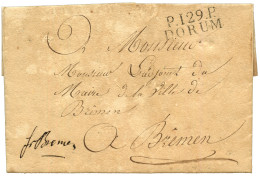 P.129.P.
DORUM
2 Monsieur
Monsieur L'adjoint du
Maire de la Ville de
Brêmen
fr Bremen
à Brêmen